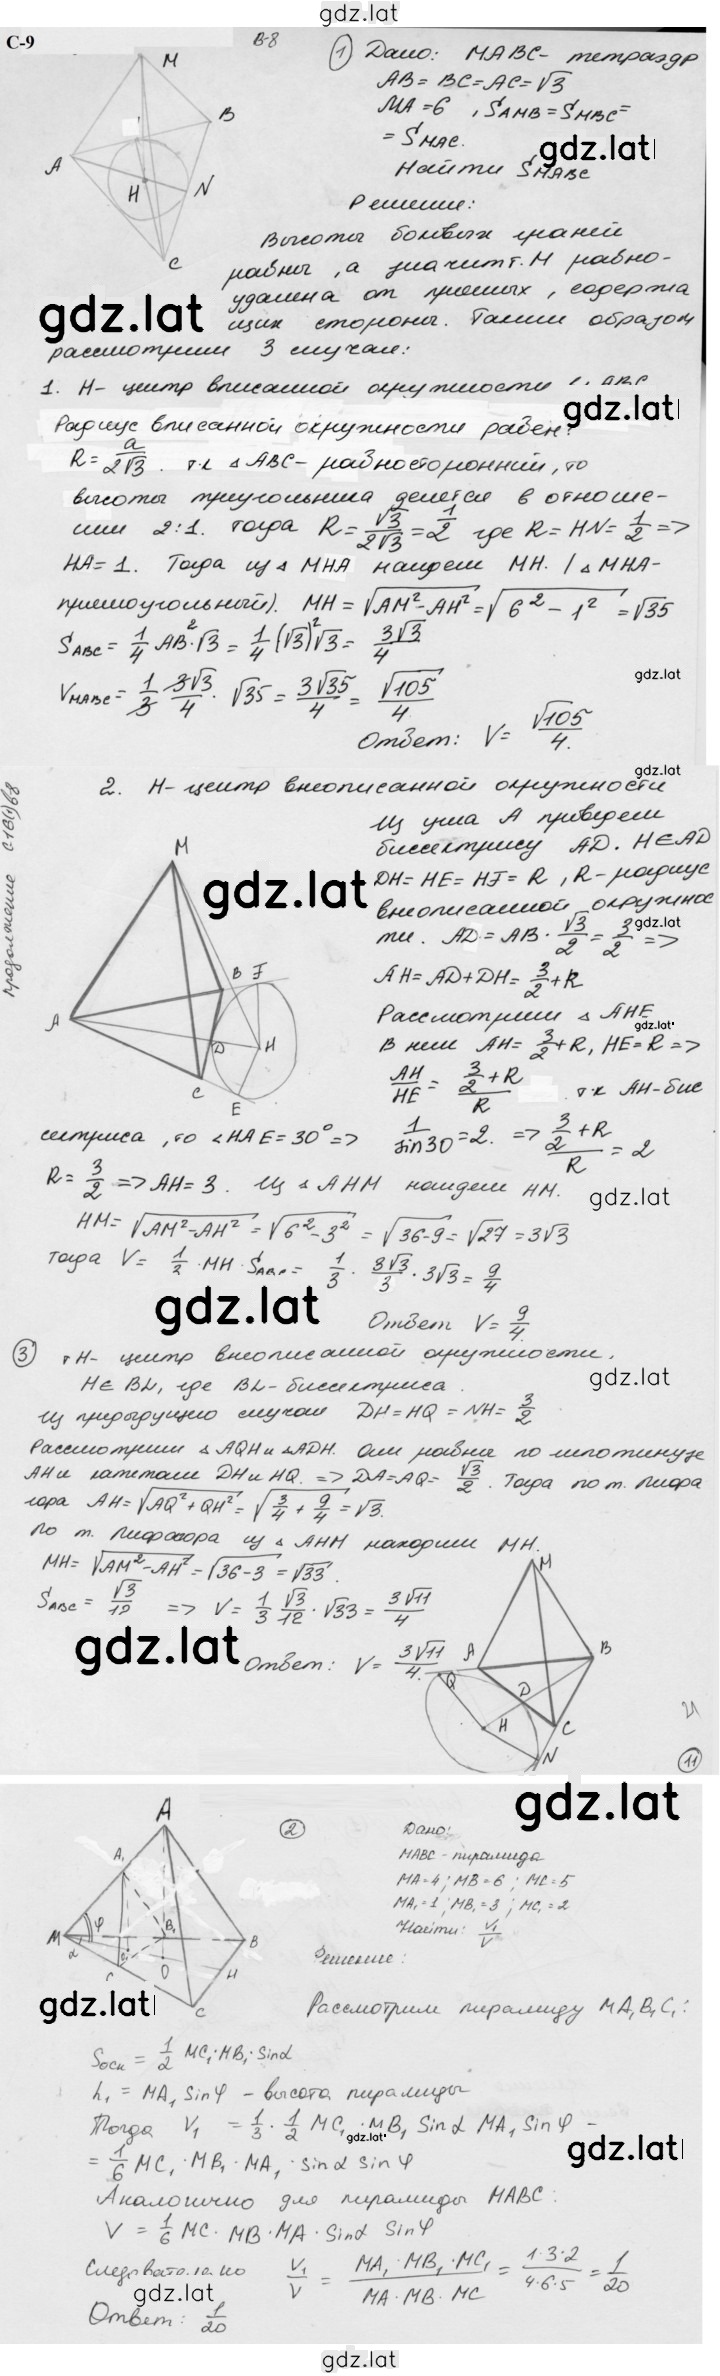 gdz.lat
С-9
В-8
① Дано: МАВС- тетраэдр
АВ= ВС=АС=√3
МА=6 , S_AMB=S_MBC=
= S_MAC.
gdz.lat
Найти S_MABC
Решение:
Высоты боковых граней
равны, а значит т. М равно-
удалена от прямых, содержа
gdz.lat
щих стороны. Таким образом
рассмотрим 3 случая:
1. Н- центр вписанной окружности
gdz.lat
Радиус вписанной окружности равен:
R= a/2√3 . т.к △ABC- равносторонний, то
высоты треугольника делятся в отноше-
нии 2:1. тогда R= √3/2√3 = 1/2 где R= HN= 1/2 =>
НА= 1. Тогда из △ МНА найдем МН. (△ МНА-
прямоугольный). МН= √AM²-AH² = √6²-1² = √35
S_ABC= 1/4 AB²·√3 = 1/4 (√3)²√3 = 3√3/4
gdz.lat
V_MABC= 1/3 · 3√3/4 · √35 = 3√35/4 = √105/4
Ответ: V= √105/4.
gdz.lat
продолжение С-16(1)В8
2. Н- центр внеописанной окружности
Из угла А проведем
биссектрису AD. H∈AD
gdz.lat
DH= HE= HF= R , R- радиус
внеописанной окружнос
gdz.lat
ти. AD= AB· √3/2 = 3/2 =>
AH= AD+DH= 3/2+R
Рассмотрим △ АНЕ
gdz.lat
В нем АН= 3/2+R, HE=R =>
AH/HE = (3/2+R)/R т.к АН-бис
сектриса, то ∠HAE=30° => 1/sin30 =2. => (3/2+R)/R = 2
R= 3/2 => AH= 3. Из △ АНМ найдем НМ.
gdz.lat
HM= √AM²-AH² = √6²-3² = √36-9 = √27 = 3√3
тогда V= 1/3 ·MH·S_ABC= 1/3 · 3√3/3 · 3√3 = 9/4
gdz.lat
Ответ V= 9/4.
③ т Н- центр внеописанной окружности,
gdz.lat
H∈ BL, где BL-биссектриса.
Из предыдущего случая DH=HQ = NH= 3/2
Рассмотрим △AQH и △ADH. Они равны по гипотинузе
АН и катетам DH и HQ. => DA=AQ= √3/2. Тогда по т. Пифа
гора AH= √AQ²+QH² = √3/4+9/4 = √3.
По т. Пифагора из △ АНМ находим МН.
MH= √AM²-AH² = √36-3 = √33.
S_ABC= √3/12 => V= 1/3 √3/12 · √33 = 3√11/4
gdz.lat
Ответ: V= 3√11/4.
21
11
gdz.lat
② Дано:
МАВС -пирамида
МА=4; МВ=6 ; МС=5
МА₁=1; МВ₁=3 ; МС₁=2
Найти: V₁/V
Решение:
gdz.lat
Рассмотрим пирамиду МА₁В₁С₁:
S_осн = 1/2 MC₁·MB₁·sinα
h₁ = MA₁ sin φ - высота пирамиды
Тогда V₁ = 1/3 · 1/2 MC₁ ·MB₁ sinα MA₁ sin φ =
gdz.lat
gdz.lat
= 1/6 MC₁ ·MB₁ ·MA₁ ·sinα sin φ
Аналогично для пирамиды МАВС:
V = 1/6 MC· MB·MA· sinα sin φ
Следовательно V₁/V = MA₁·MB₁·MC₁/MA·MB·MC = 1·3·2/4·6·5 = 1/20
gdz.lat
Ответ: 1/20
gdz.lat